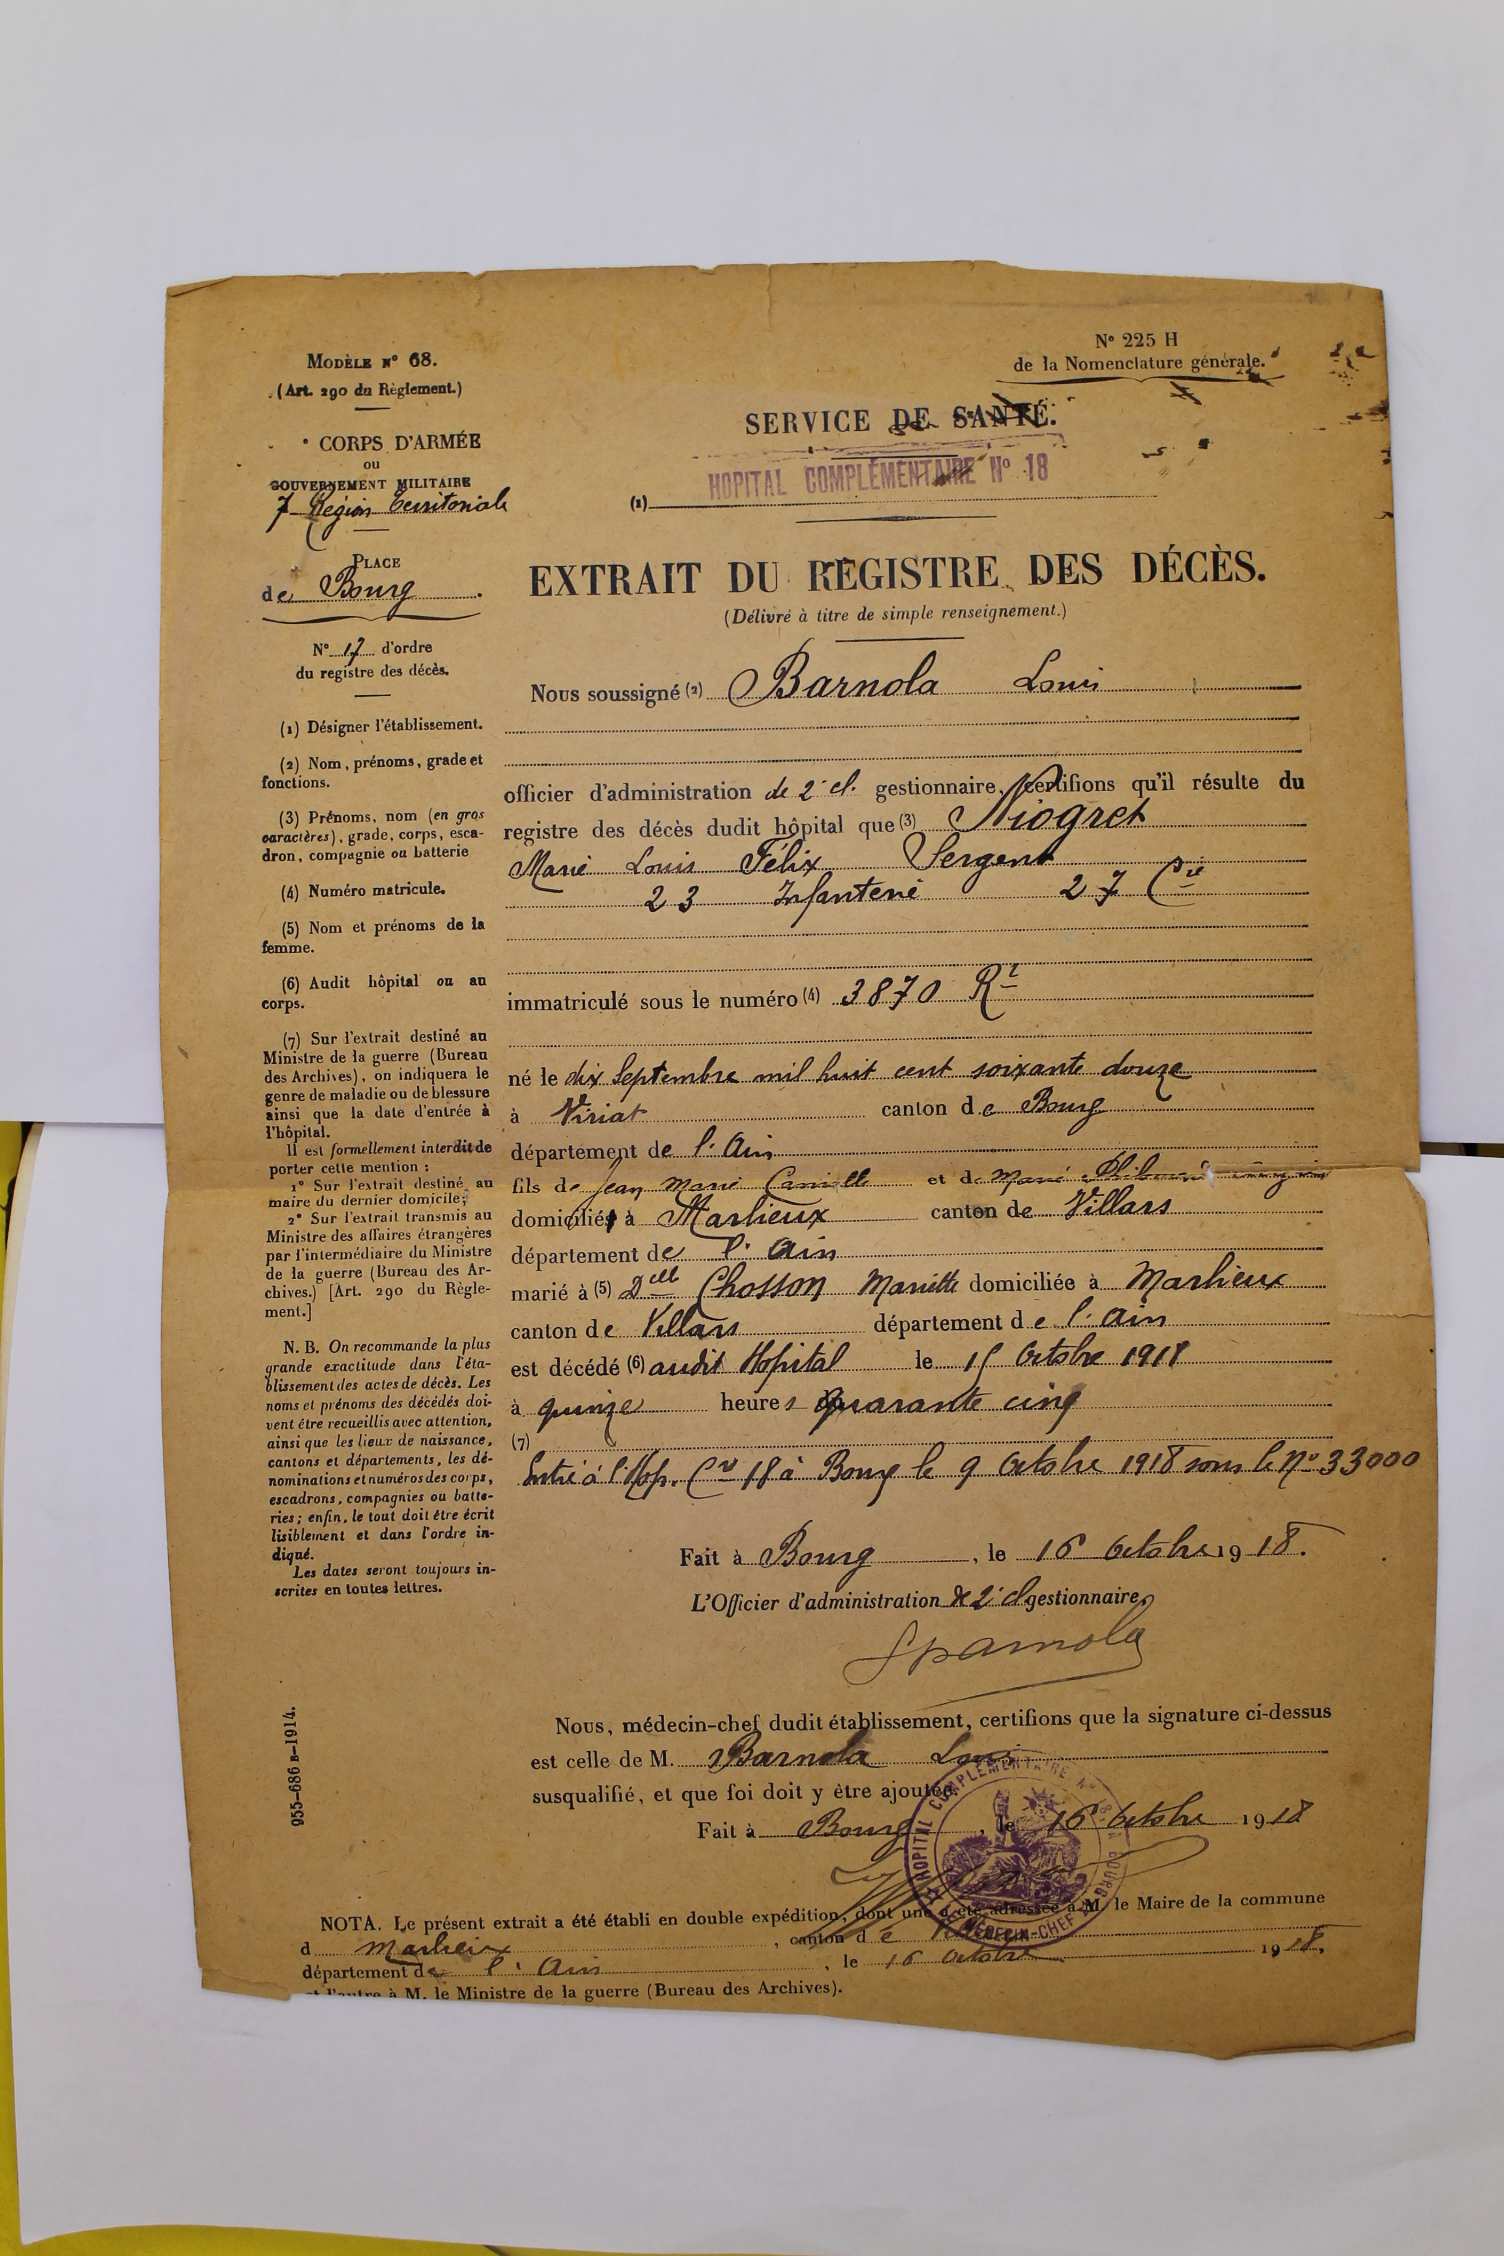 MODÈLE N° 68.
(Art. 290 du Règlement.)
CORPS D'ARMÉE
ou
GOUVERNEMENT MILITAIRE
7 Région Territoriale
PLACE
de Bourg
N° 17 d'ordre
du registre des décès.
(1) Désigner l'établissement.
(2) Nom, prénoms, grade et
fonctions.
(3) Prénoms, nom (en gros
caractères), grade, corps, esca-
dron, compagnie ou batterie
(4) Numéro matricule.
(5) Nom et prénoms de la
femme.
(6) Audit hôpital ou au
corps.
(7) Sur l'extrait destiné au
Ministre de la guerre (Bureau
des Archives), on indiquera le
genre de maladie ou de blessure
ainsi que la date d'entrée à
l'hôpital.
Il est formellement interdit de
porter cette mention :
1° Sur l'extrait destiné au
maire du dernier domicile;
2° Sur l'extrait transmis au
Ministre des affaires étrangères
par l'intermédiaire du Ministre
de la guerre (Bureau des Ar-
chives.) [Art. 290 du Règle-
ment.]
N. B. On recommande la plus
grande exactitude dans l'éta-
blissement des actes de décès. Les
noms et prénoms des décédés doi-
vent être recueillis avec attention,
ainsi que les lieux de naissance,
cantons et départements, les dé-
nominations et numéros des corps,
escadrons, compagnies ou batte-
ries; enfin, le tout doit être écrit
lisiblement et dans l'ordre in-
diqué.
Les dates seront toujours in-
scrites en toutes lettres.
955-686 B-1914.
N° 225 H
de la Nomenclature générale.
SERVICE DE SANTÉ.
(1) HOPITAL COMPLÉMENTAIRE N° 18
EXTRAIT DU REGISTRE DES DÉCÈS.
(Délivré à titre de simple renseignement.)
Nous soussigné (2) Barnola Louis
officier d'administration de 2e cl. gestionnaire, certifions qu'il résulte du
registre des décès dudit hôpital que (3) Niogret
Marie Louis Félix Sergent
23 Infanterie 27 Cie
immatriculé sous le numéro (4) 3870 Rt
né le dix Septembre mil huit cent soixante douze
à Viriat canton de Bourg
département de l'Ain
fils de Jean Marie Camille et de Marie
domiciliés à Marlieux canton de Villars
département de l'Ain
marié à (5) Delle Chosson Mariette domiciliée à Marlieux
canton de Villars département de l'Ain
est décédé (6) audit Hopital le 15 Octobre 1918
à quinze heures quarante cinq
(7)
Entré à l'Hop. Cre 18 à Bourg le 9 Octobre 1918 sous le No 33000
Fait à Bourg, le 16 Octobre 1918.
L'Officier d'administration de 2e cl gestionnaire,
Barnola
Nous, médecin-chef dudit établissement, certifions que la signature ci-dessus
est celle de M. Barnola Louis
susqualifié, et que foi doit y être ajoutée.
Fait à Bourg, le 16 Octobre 1918
HOPITAL COMPLÉMENTAIRE N° 18 BOURG
MÉDECIN-CHEF
NOTA. Le présent extrait a été établi en double expédition, dont une a été adressée à M. le Maire de la commune
d Marlieux, canton de
département de l'Ain, le 16 Octobre 1918.
et l'autre à M. le Ministre de la guerre (Bureau des Archives).